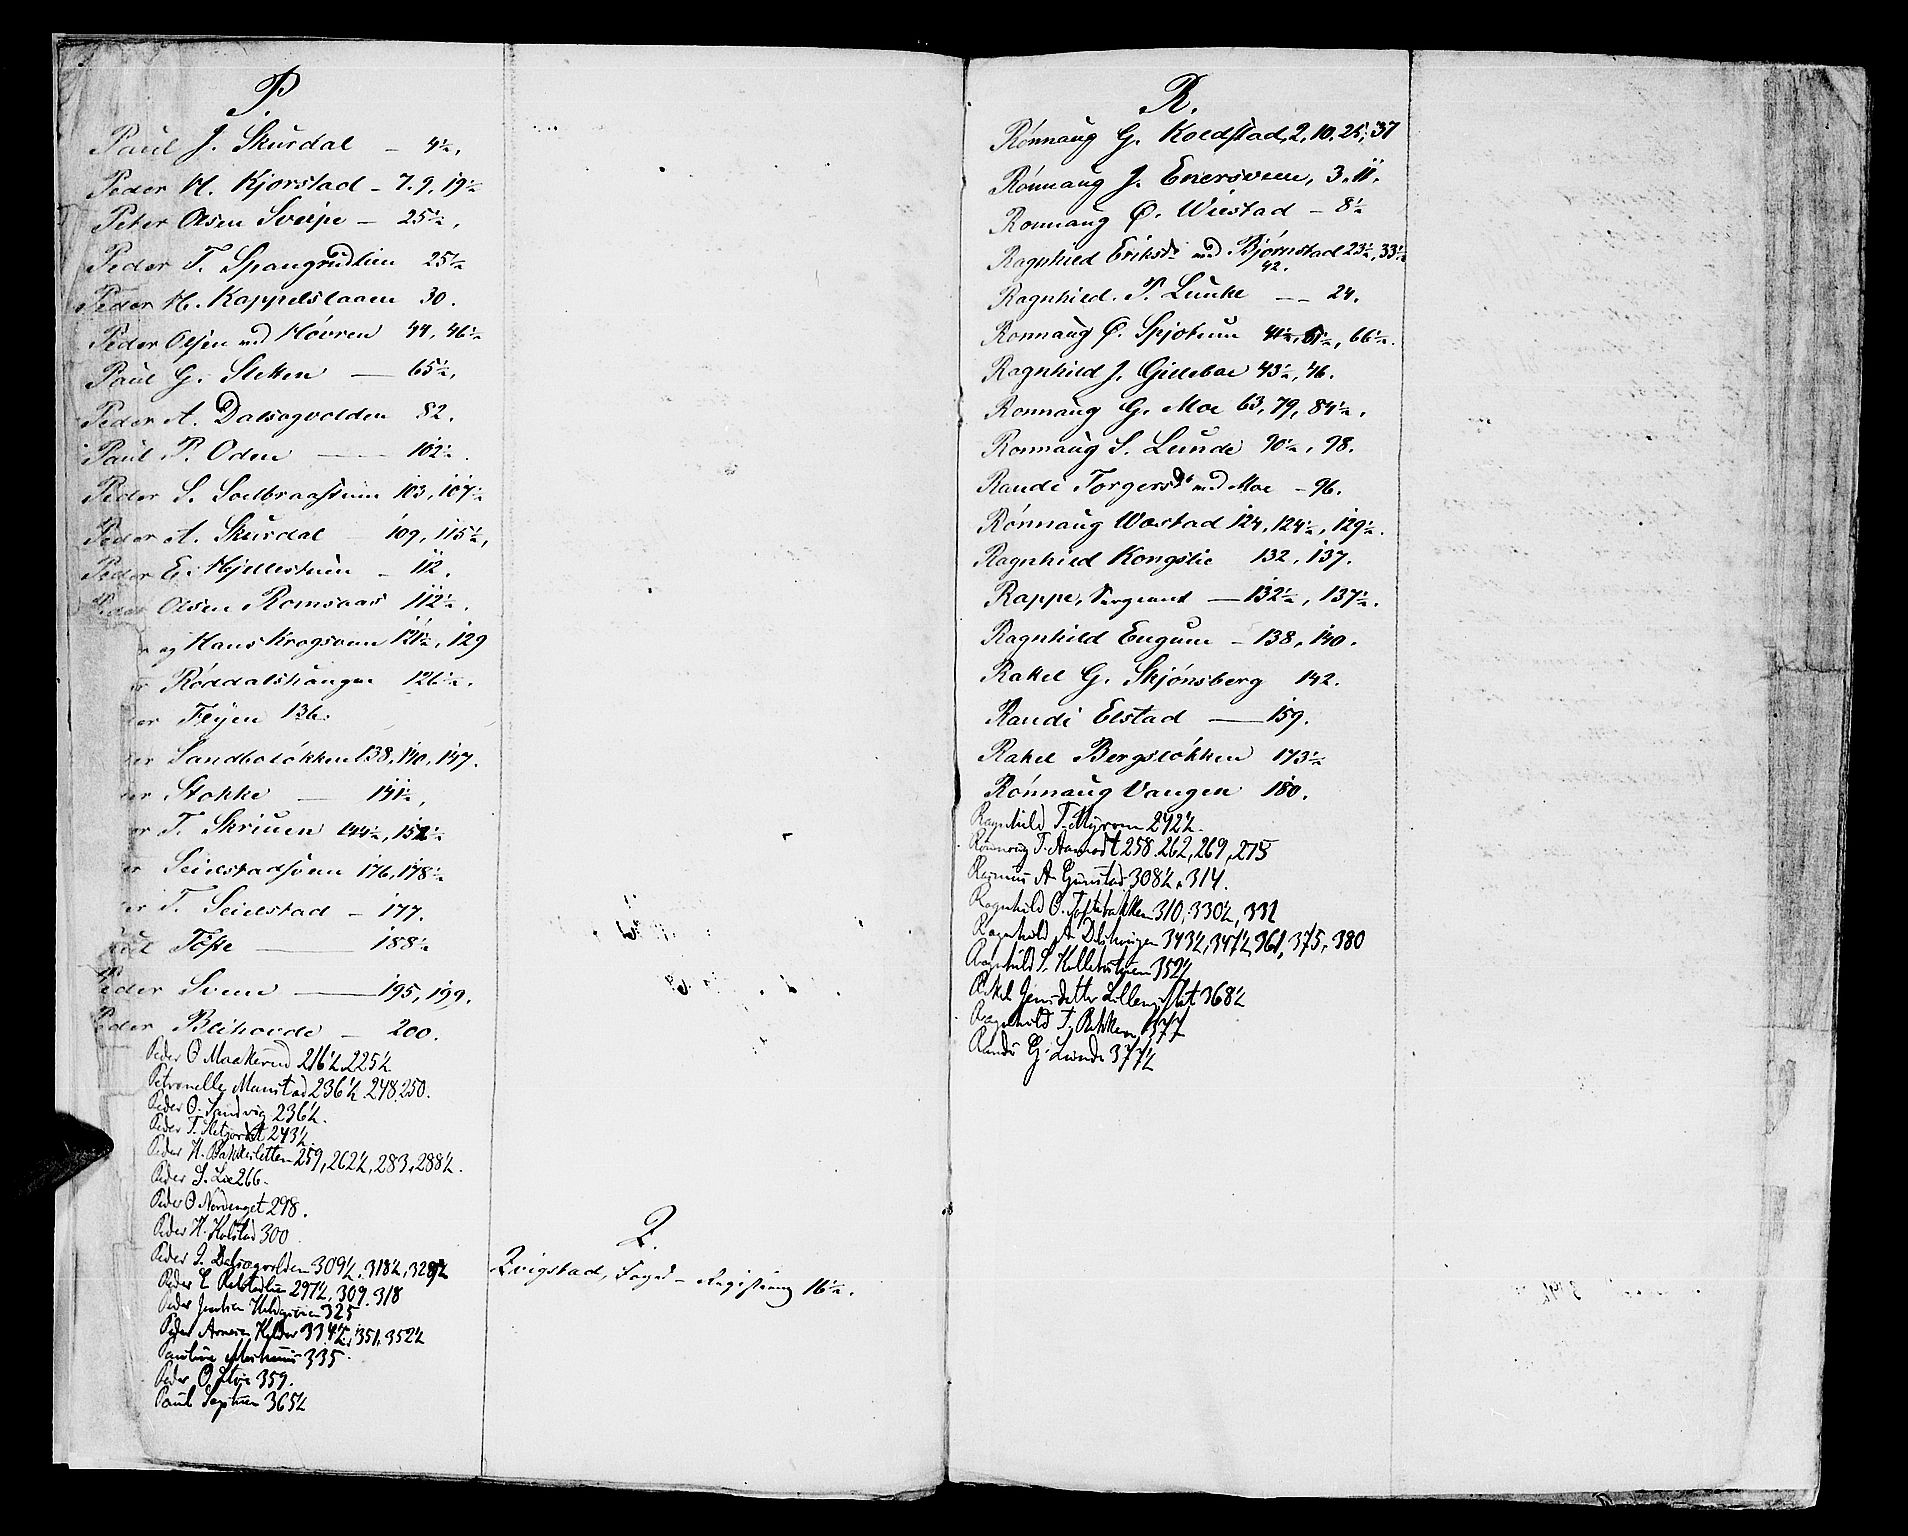 P.
Paul J. Skurdal – 4½,
Peder H. Kjorstad – 7. 9, 19½
Peter Olsen Sveipe – 25½,
Peder T. Spangrudlien 25½
Peder H. Kappelslaaen 30.
Peder Olsen ved Hovren 44, 46½
Paul G. Sletten — 65½,
Peder A. Dalsegvolden 82.
Paul P. Oden — 102½.
Peder S. Solbraastuen 103, 107½
Peder A. Skurdal 109, 115½,
Peder E. Hjellestuen – 112.
Peder Olsen Romsaas 112½.
og Hans Krogsveen 121½, 129
Röddalshaugen 126½.
Flyen 136.
Sandbolökken 138, 140, 147.
Stokke — 141½,
T. Skriuen 144½, 152½
Seielstadsveen 176, 178½
T. Seielstad – 177.
Töfte — 188½
Peder Sveen — 195, 199.
Peder Blihovde – 200.
Peder O Maakerud 216½, 225½
Petronelle Manstad 236½ 248. 250.
Peder O. Sandvig 236½.
Peder T. 243½.
Peder H. Bakkesletten 259, 262½, 283, 288½.
Peder S. Lie 266.
Peder O Nordenget 298.
Peder H. Kolstad 300
Peder J. Dalsegvolden 309½, 318½, 328½
Peder E. 297½, 309. 318
Peder 325
Peder 334½, 351, 352½
Pauline 335.
Peder O. 359.
Paul 365½
Q.
Qvigstad, Foged – Registrering 16½.
R.
Rönnaug G. Koldstad, 2. 10. 25, 37
Rönnaug J. Enersveen, 3. 11.
Ronnaug O. Wiestad – 8½
Ragnhild Eriksd. ved Bjørnstad 23½, 33½
42.
Ragnhild. P. Lunke — 24.
Ronnaug O. Spjotum 41½, 61½, 66½.
Ragnhild J. Gillebae 43½, 46.
Ronnaug G. Moe 63, 79, 84½.
Ronnaug S. Lunde 90½, 98.
Randi Torgersd. ved Moe – 96.
Rönnaug Wostad 124, 124½, 129½.
Ragnhild Kongslie 132, 137.
Rappe, Sergeant — 132½, 137½.
Ragnhild Engum – 138, 140.
Rakel G. Skjönsberg 142.
Randi Elstad — 159.
Rakel Bergslökken 173½
Rönnaug Vangen 180.
Ragnhild T. Myrom 242½.
Rönnoug T. Aamodt 258. 262, 269, 275
Rasmus A. Gunstad 308½, 314.
Ragnhild O. Toftebakken 310, 330½, 331
Ragnhild A 343½, 347½, 361, 375, 380
Ragnhild S. 352½
Rakel Jensdatter 368½
Ragnhild T. Bakken 377
Randi G. Lunde 377½